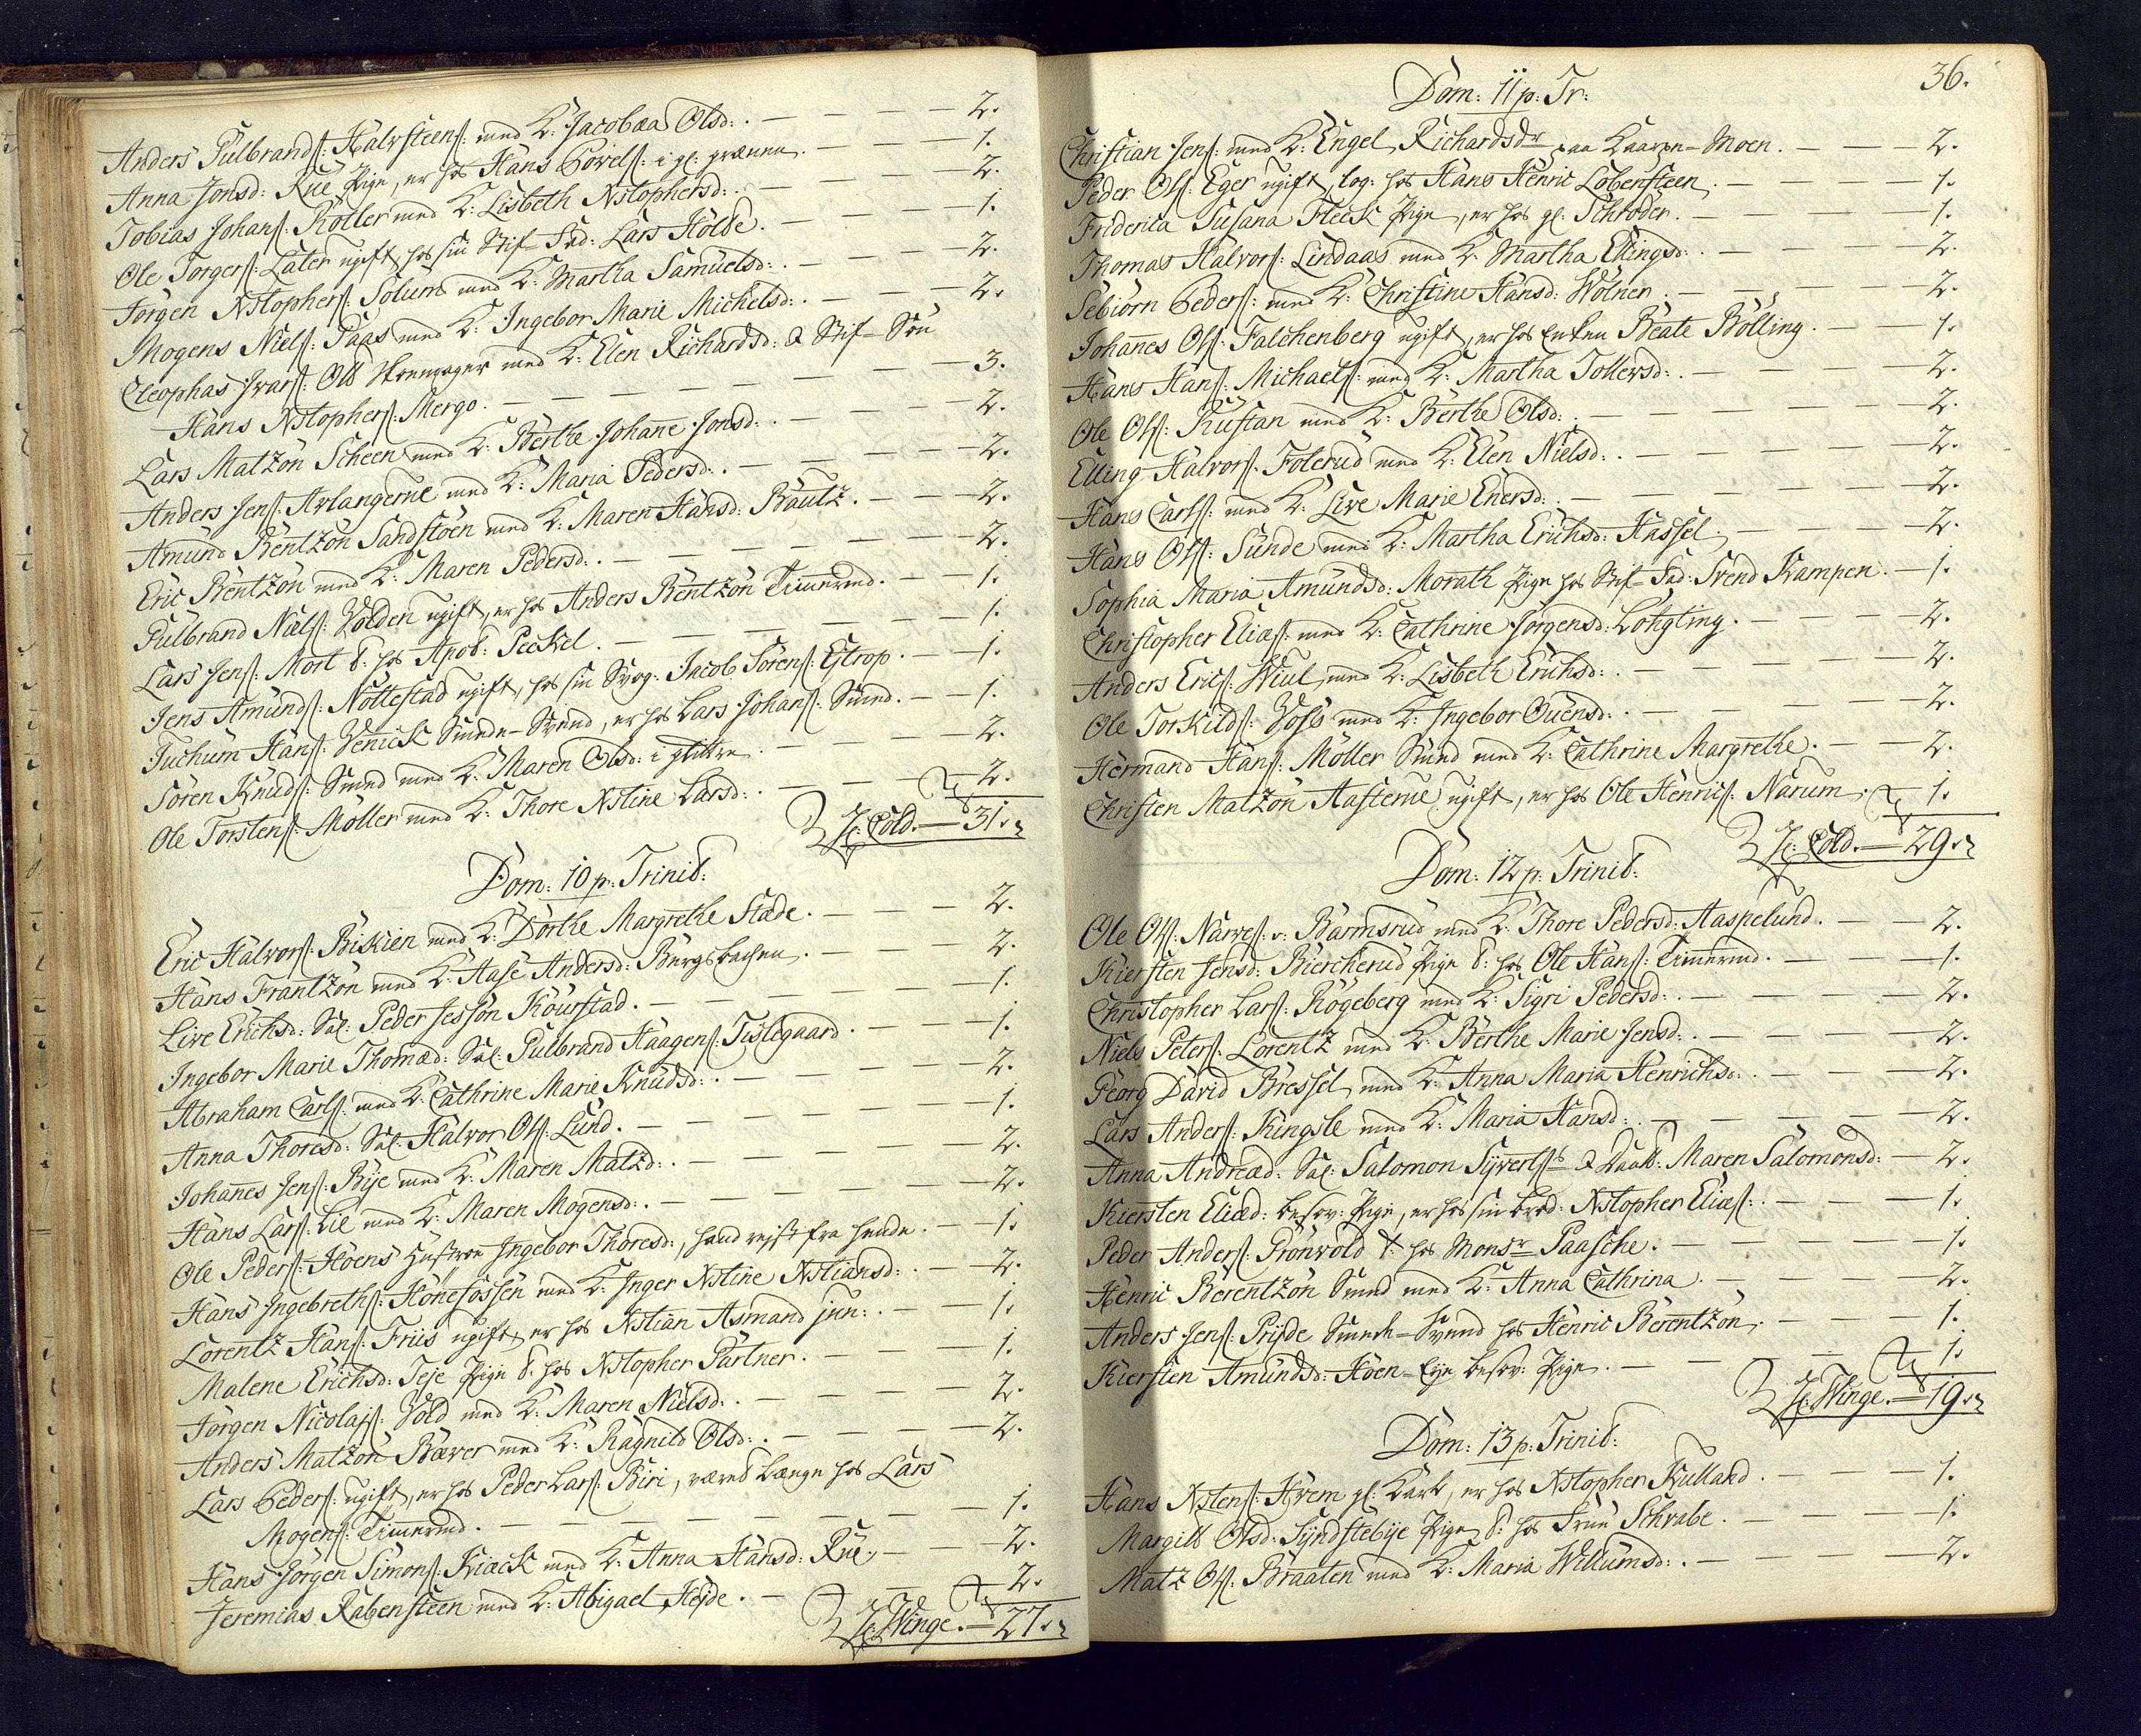 Anders Gulbrands: Halvsteens: med K: Jacobæa Olsd: . — — — 2.
Anna Jonsd: Rue Pige, er hos Hans Povels: i gl: — — 1.
Tobias Johans: Köller med K: Lisbeth Xstophersd: . — — 2.
Ole Torgers: Later ugift, hos sin Stif-Fad: Lars Holde. — — 1.
Jörgen Xstophers: Solum med K: Martha Samuelsd: . — — 2.
Mogens Niels: Saas med K: Ingebor Marie Michelsd: . — — 2.
Cleophas Ivars: Old med K: Elen Richardsd: & Stif-Sön
Hans Xstophers: Mergo. — — — 3.
Lars Matzön Scheen med K: Berthe Johanne Jonsd: . — — 2.
Anders Jens: Arlangerne med K: Maria Pedersd: . — — 2.
Amund Bentzön Sandstöen med K: Maren Hansd: Bautz. — — 2.
Eric Bentzön med K: Maren Pedersd: . — — — 2.
Gulbrand Niels: Volden ugift, er hos Anders Bentzön Timmermd. — — 1.
Lars Jens: Mort t: hos Apot: Peckel. — — — 1.
Jens Amunds: Nottestad ugift, hos sin Svog: Jacob Sörens: Estrop. — — 1.
Juchum Hans: Venick Smede-Svend, er hos Lars Johans: Smed. — — 1.
Sören Knuds: Smed med K: Maren Olsd: i — — 2.
Ole Torstens: Möller med K: Thore Xstine Larsd: . — — 2.
H: Cold. — 31.
Dom: 10 p: Trinit:
Eric Halvors: Biskien med K: Dorthe Margrethe Stade. — — — 2.
Hans Frantzön med K: Aase Andersd: Bergsbachen. — — 2.
Live Erichsd: Sal: Peder Jessön Kourstad. — — — 1.
Ingebor Marie Thomæd: Sal: Gulbrand Haagens: Tislegaard. — — 1.
Abraham Carls: med K: Cathrine Marie Knudsd: . — — 2.
Anna Thoresd: Sal: Halvor Ols: Lund. — — — 1.
Johannes Jens: Bije med K: Maren Matzd: . — — — 2.
Hans Lars: Lie med K: Maren Mogensd: . — — — 2.
Ole Peders: Hoens Hustroe Ingebor Thoresd:, hand rejst fra hende. — — 1.
Hans Ingebreths: Hönefossen med K: Inger Xstine Xstiansd: . — — 2.
Lorentz Hans: Friis ugift, er hos Xstian Asmand jun: . — — 1.
Malene Erichsd: Teje Pige t: hos Xstopher Gartner. — — 1.
Jörgen Nicolajs: Vold med K: Maren Nielsd: . — — — 2.
Anders Matzön Bæver med K: Ragnild Olsd: . — — — 2.
Lars Peders: ugift, er hos Peder Lars: Biri, været længe hos Lars
Mogens: Timmermd. — — — 1.
Hans Jörgen Simons: Kiack med K: Anna Hansd: Rue. — — 2.
Jeremias Rabensteen med K: Abigael Hejde. — — 2.
H: Winge. — 27.
36.
Dom: 11 p: Tr:
Christian Jens: med K: Engel Richardsdr paa Kaaren-Moen. — — — 2.
Peder Ols: Eger ugift, log: hos Hans Henric Lobensteen. — — 1.
Friderica Susana Fleck Pige, er hos gl: Schröder. — — 1.
Thomas Halvors: Lindaas med K: Martha Ellingsd: . — — 2.
Sebiörn Peders: med K: Christine Hansd: Wölner. — — 2.
Johannes Ols: Falchenberg ugift, er hos Enken Beate Bölling. — — 1.
Hans Hans: Michaels: med K: Martha Tollersd: . — — 2.
Ole Ols: Rustan med K: Berthe Olsd: . — — — 2.
Elling Halvors: Folerud med K: Elen Nielsd: . — — — 2.
Hans Carls: med K: Live Marie Enersd: . — — — 2.
Hans Ols: Sunde med K: Martha Erichsd: Hassel. — — 2.
Sophia Maria Amundsd: Morath Pige hos Stif-Fad: Svend Krampen. — 1.
Christopher Elias: med K: Cathrine Jörgensd: Löhgting. — — 2.
Anders Erics: Wiul med K: Lisbeth Erichsd: . — — — 2.
Ole Torkilds: Voss med K: Ingebor Ouensd: . — — — 2.
Hermand Hans: Möller Smed med K: Cathrine Margrethe. — — 2.
Christen Matzön Aasterne ugift, er hos Ole Henrics: Narum. — 1.
H: Cold. — 29.
Dom: 12 p: Trinit:
Ole Ols: Narves: v: Barmsrud med K: Thore Pedersd: Haspelund. — — 2.
Kiersten Jensd: Biercherud Pige t: hos Ole Hans: Timmermd. — — 1.
Christopher Lars: Rögeberg med K: Sigri Pedersd: . — — 2.
Niels Peters: Lorentz med K: Berthe Marie Jensd: . — — 2.
Georg David Bressel med K: Anna Maria Henrichsd: . — — 2.
Lars Anders: Kingsle med K: Maria Hansd: . — — — 2.
Anna Andreæd: Sal: Salomon Syverts: & Daatt: Maren Salomonsd: — 2.
Kiersten Eliæd: besov: Pige, er hos sin Brod: Xstopher Eliæs: . — — 1.
Peder Anders: Grönvold t: hos Monsr Paasche. — — — 1.
Henric Berentzön Smed med K: Anna Cathrina. — — — 2.
Anders Jens: Prijde Smede-Svend hos Henric Berentzön. — — 1.
Kiersten Amundsd: Hoen-Eje besov: Pige. — — — 1.
H: Winge. — 19.
Dom: 13 p: Trinit:
Hans Xstens: Hrem gl: Karl, er hos Xstopher Kulland. — — 1.
Margitt Olsd: Syndstebije Pige t: hos Frue Schrabe. — — 1.
Matz Ols: Braaten med K: Maria Willumsd: . — — — 2.